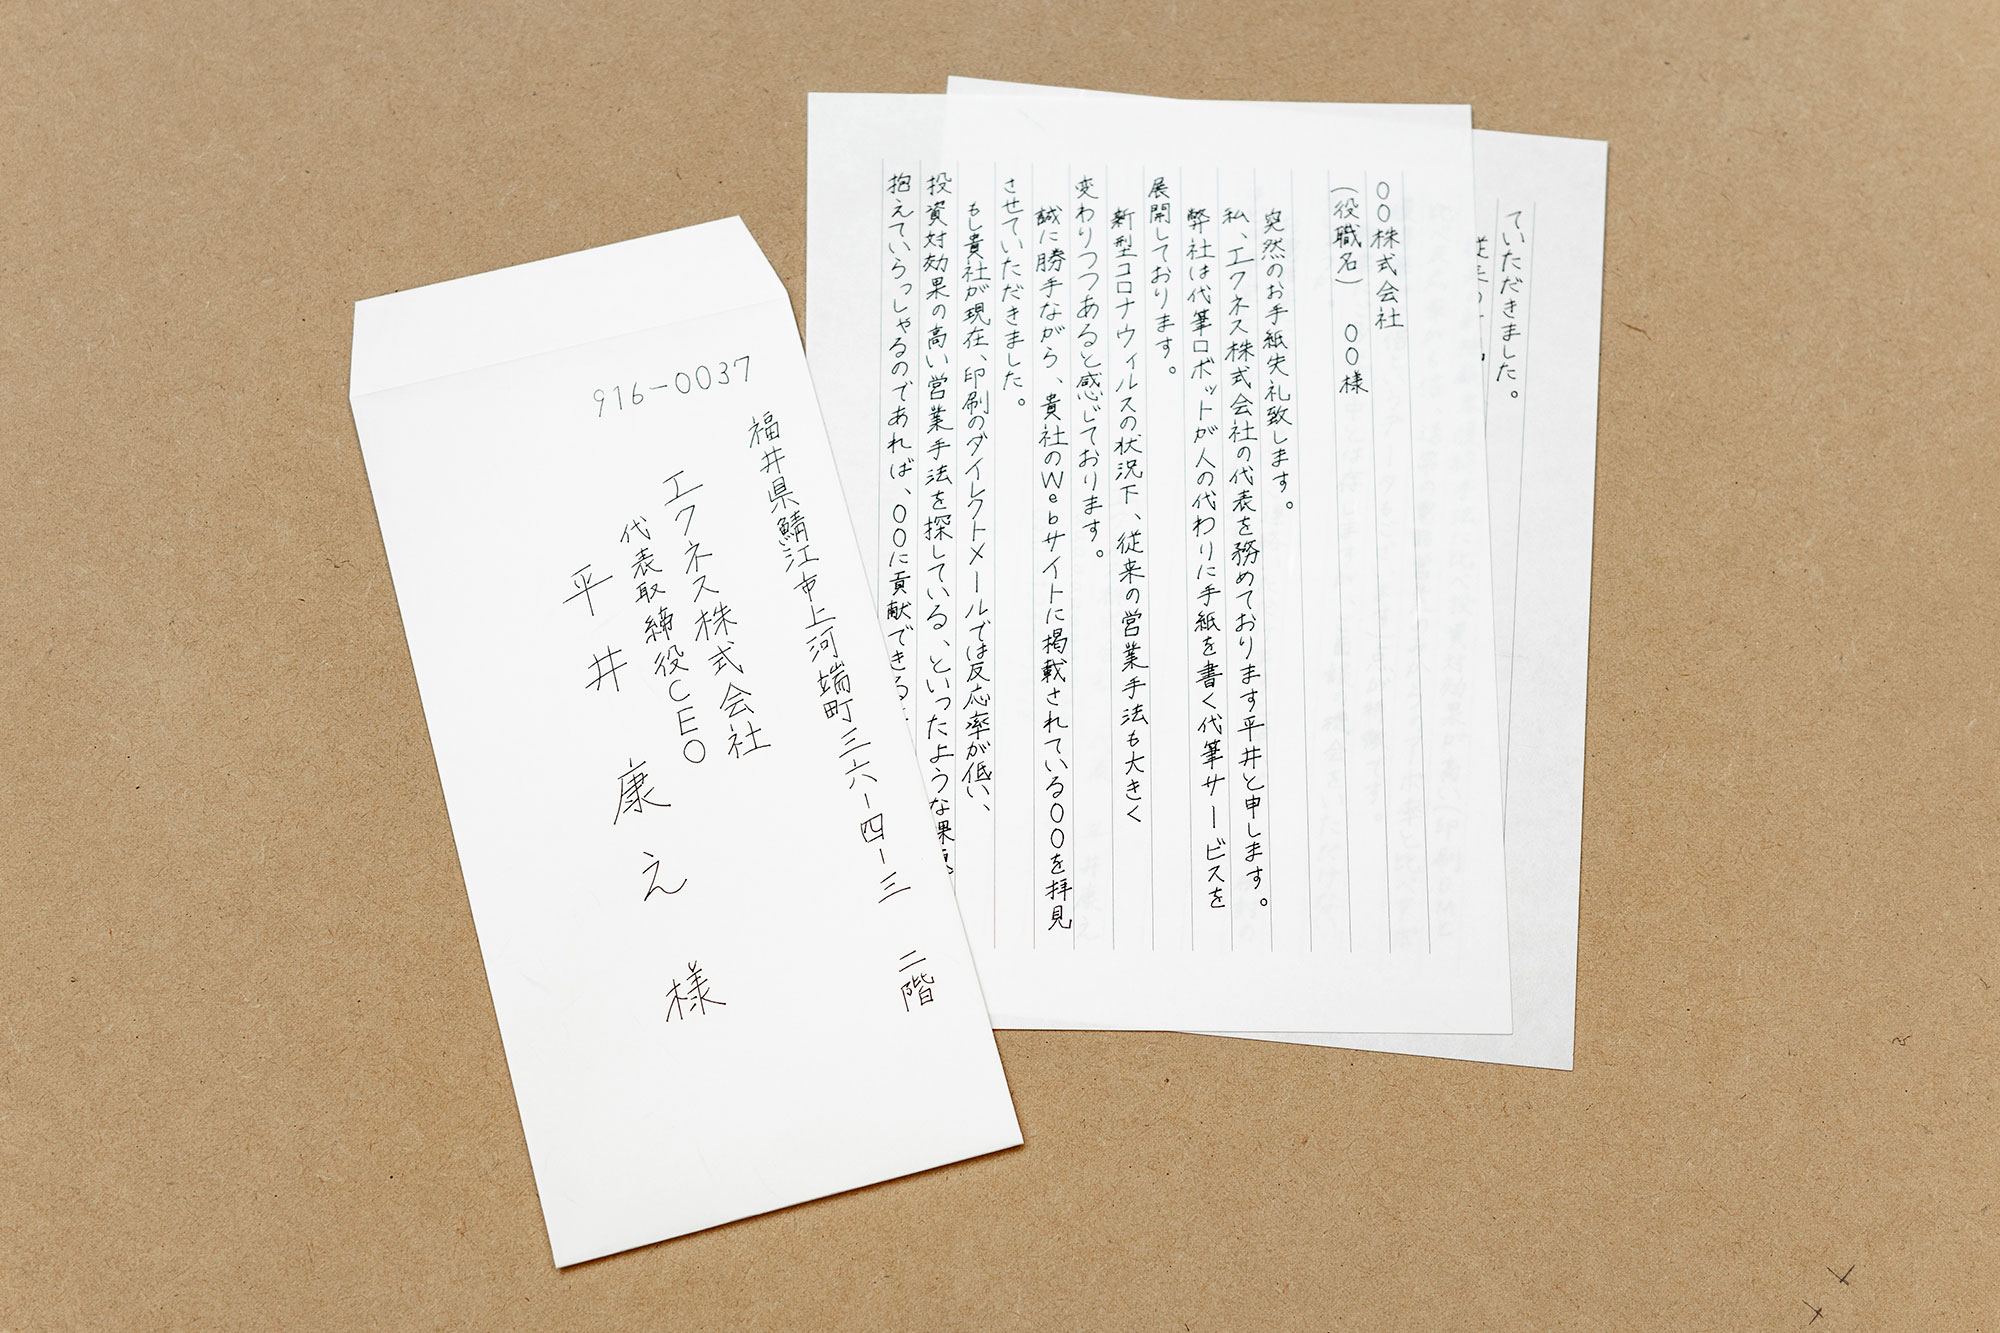 916-0037
福井県鯖江市上河端町三六-四-三 二階
エクネス株式会社
代表取締役CEO
平井康え様
〇〇株式会社
(役職名) 〇〇様
突然のお手紙失礼致します。
私、エクネス株式会社の代表を務めております平井と申します。
弊社は代筆ロボットが人の代わりに手紙を書く代筆サービスを
展開しております。
新型コロナウィルスの状況下、従来の営業手法も大きく
変わりつつあると感じております。
誠に勝手ながら、貴社のWebサイトに掲載されている〇〇を拝見
させていただきました。
もし貴社が現在、印刷のダイレクトメールでは反応率が低い、
投資対効果の高い営業手法を探している、といったような課題
抱えていらっしゃるのであれば、〇〇に貢献できる
ていただきました。